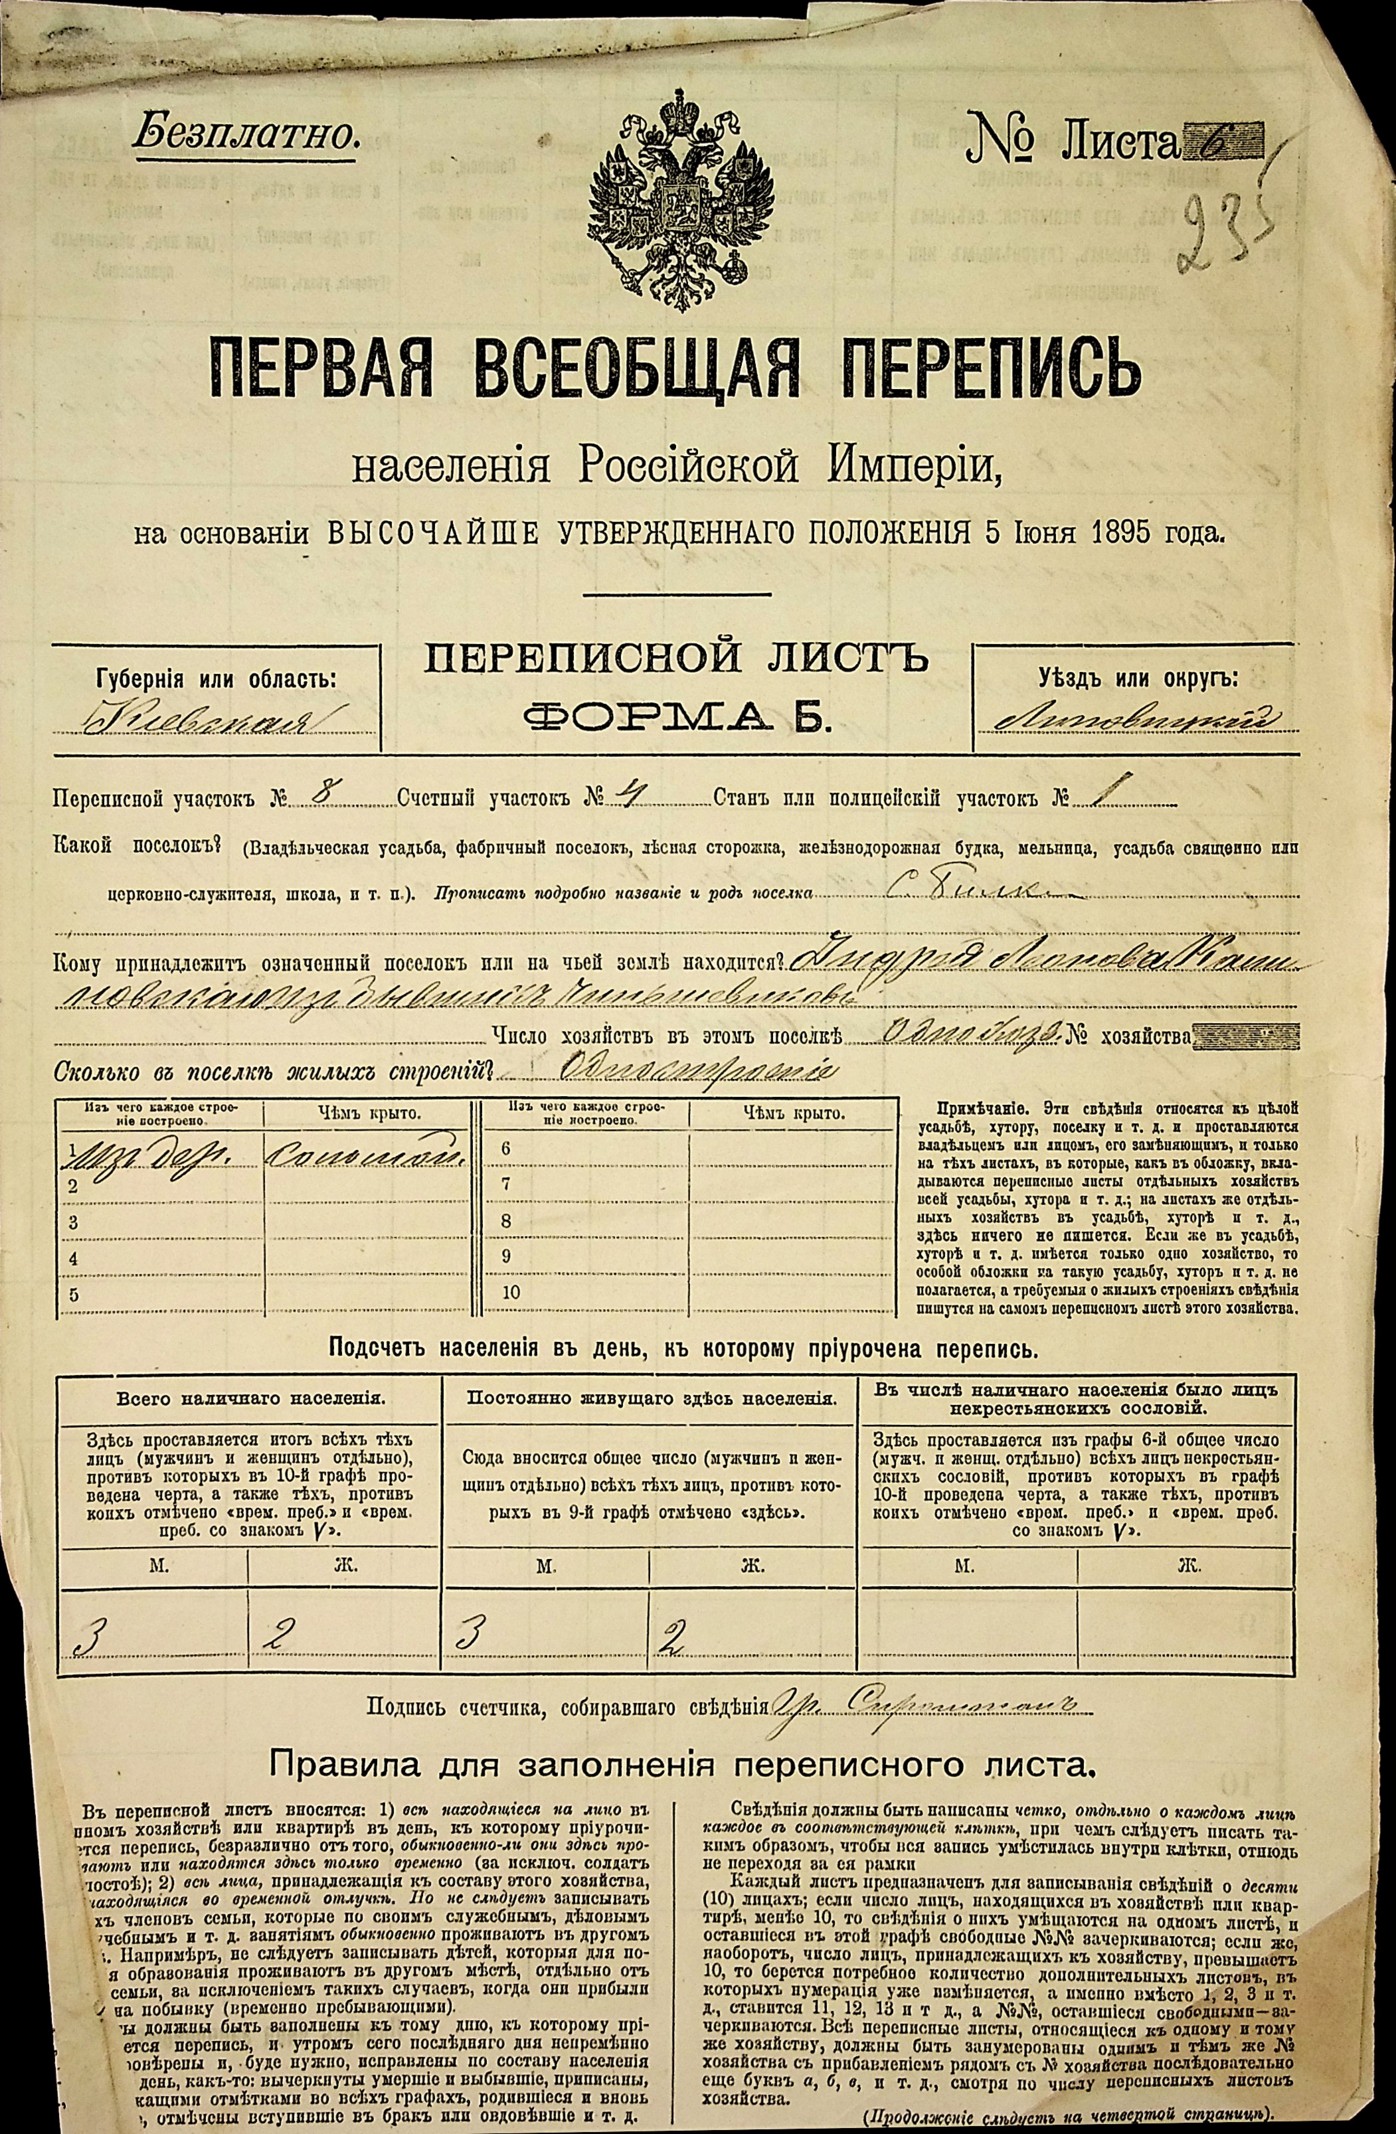 Безплатно.
№ Листа 6
235
ПЕРВАЯ ВСЕОБЩАЯ ПЕРЕПИСЬ
населенія Россійской Имперіи,
на основаніи ВЫСОЧАЙШЕ УТВЕРЖДЕННАГО ПОЛОЖЕНІЯ 5 Іюня 1895 года.
ПЕРЕПИСНОЙ ЛИСТЪ
ФОРМА Б.
Губернія или область:
Кіевская
Уѣздъ или округъ:
Липовецкій
Переписной участокъ № 8 Счетный участокъ № 4 Станъ или полицейскій участокъ № 1
Какой поселокъ? (Владѣльческая усадьба, фабричный поселокъ, лѣсная сторожка, желѣзнодорожная будка, мельница, усадьба священно или
церковно-служителя, школа, и т. п.). Прописать подробно названіе и родъ поселка с.
Кому принадлежитъ означенный поселокъ или на чьей землѣ находится?
изъ бывшихъ чиншевиковъ
Число хозяйствъ въ этомъ поселкѣ одно хозя. № хозяйства
Сколько въ поселкѣ жилыхъ строеній? Одно строеніе
Изъ чего каждое строе-
ніе построено.
Чѣмъ крыто.
Изъ чего каждое строе-
ніе построено.
Чѣмъ крыто.
1 изъ дер. соломой.
2
3
4
5
6
7
8
9
10
Примѣчаніе. Эти свѣдѣнія относятся къ цѣлой
усадьбѣ, хутору, поселку и т. д. и проставляются
владѣльцемъ или лицомъ, его замѣняющимъ, и только
на тѣхъ листахъ, въ которые, какъ въ обложку, вкла-
дываются переписные листы отдѣльныхъ хозяйствъ
всей усадьбы, хутора и т. д.; на листахъ же отдѣль-
ныхъ хозяйствъ въ усадьбѣ, хуторѣ и т. д.,
здѣсь ничего не пишется. Если же въ усадьбѣ,
хуторѣ и т. д. имѣется только одно хозяйство, то
особой обложки на такую усадьбу, хуторъ и т. д. не
полагается, а требуемыя о жилыхъ строеніяхъ свѣдѣнія
пишутся на самомъ переписномъ листѣ этого хозяйства.
Подсчетъ населенія въ день, къ которому пріурочена перепись.
Всего наличнаго населенія.
Здѣсь проставляется итогъ всѣхъ тѣхъ
лицъ (мужчинъ и женщинъ отдѣльно),
противъ которыхъ въ 10-й графѣ про-
ведена черта, а также тѣхъ, противъ
коихъ отмѣчено «врем. преб.» и «врем.
преб. со знакомъ V».
М. Ж.
3 2
Постоянно живущаго здѣсь населенія.
Сюда вносится общее число (мужчинъ и жен-
щинъ отдѣльно) всѣхъ тѣхъ лицъ, противъ кото-
рыхъ въ 9-й графѣ отмѣчено «здѣсь».
М. Ж.
3 2
Въ числѣ наличнаго населенія было лицъ
некрестьянскихъ сословій.
Здѣсь проставляется изъ графы 6-й общее число
(мужч. и женщ. отдѣльно) всѣхъ лицъ некрестьян-
скихъ сословій, противъ которыхъ въ графѣ
10-й проведена черта, а также тѣхъ, противъ
коихъ отмѣчено «врем. преб.» и «врем. преб.
со знакомъ V».
М. Ж.
Подпись счетчика, собиравшаго свѣдѣнія
Правила для заполненія переписного листа.
Въ переписной листъ вносятся: 1) всѣ находящіеся на лицо въ
нномъ хозяйствѣ или квартирѣ въ день, къ которому пріурочи-
ется перепись, безразлично отъ того, обыкновенно-ли они здѣсь про-
вають или находятся здѣсь только временно (за исключ. солдатъ
постоѣ); 2) всѣ лица, принадлежащія къ составу этого хозяйства,
находящіяся во временной отлучкѣ. Но не слѣдуетъ записывать
хъ членовъ семьи, которые по своимъ служебнымъ, дѣловымъ
чебнымъ и т. д. занятіямъ обыкновенно проживаютъ въ другомъ
. Напримѣръ, не слѣдуетъ записывать дѣтей, которыя для по-
я образованія проживаютъ въ другомъ мѣстѣ, отдѣльно отъ
семьи, за исключеніемъ такихъ случаевъ, когда они прибыли
на побывку (временно пребывающими).
ы должны быть заполнены къ тому дню, къ которому прі-
ется перепись, и утромъ сего послѣдняго дня непремѣнно
овѣрены и, буде нужно, исправлены по составу населенія
день, какъ-то: вычеркнуты умершіе и выбывшіе, приписаны,
кащими отмѣтками во всѣхъ графахъ, родившіеся и вновь
, отмѣчены вступившіе въ бракъ или овдовѣвшіе и т. д.
Свѣдѣнія должны быть написаны четко, отдѣльно о каждомъ лицѣ
каждое въ соотвѣтствующей клѣткѣ, при чемъ слѣдуетъ писать та-
кимъ образомъ, чтобы вся запись умѣстилась внутри клѣтки, отнюдь
не переходя за ея рамки
Каждый листъ предназначенъ для записыванія свѣдѣній о десяти
(10) лицахъ; если число лицъ, находящихся въ хозяйствѣ или квар-
тирѣ, менѣе 10, то свѣдѣнія о нихъ умѣщаются на одномъ листѣ, и
оставшіеся въ этой графѣ свободные №№ зачеркиваются; если же,
наоборотъ, число лицъ, принадлежащихъ къ хозяйству, превышаетъ
10, то берется потребное количество дополнительныхъ листовъ, въ
которыхъ нумерація уже измѣняется, а именно вмѣсто 1, 2, 3 и т.
д., ставится 11, 12, 13 и т д., а №№, оставшіеся свободными—за-
черкиваются. Всѣ переписные листы, относящіеся къ одному и тому
же хозяйству, должны быть занумерованы однимъ и тѣмъ же №
хозяйства съ прибавленіемъ рядомъ съ № хозяйства послѣдовательно
еще буквъ а, б, в, и т. д., смотря по числу переписныхъ листовъ
хозяйства.
(Продолженіе слѣдуетъ на четвертой страницѣ).